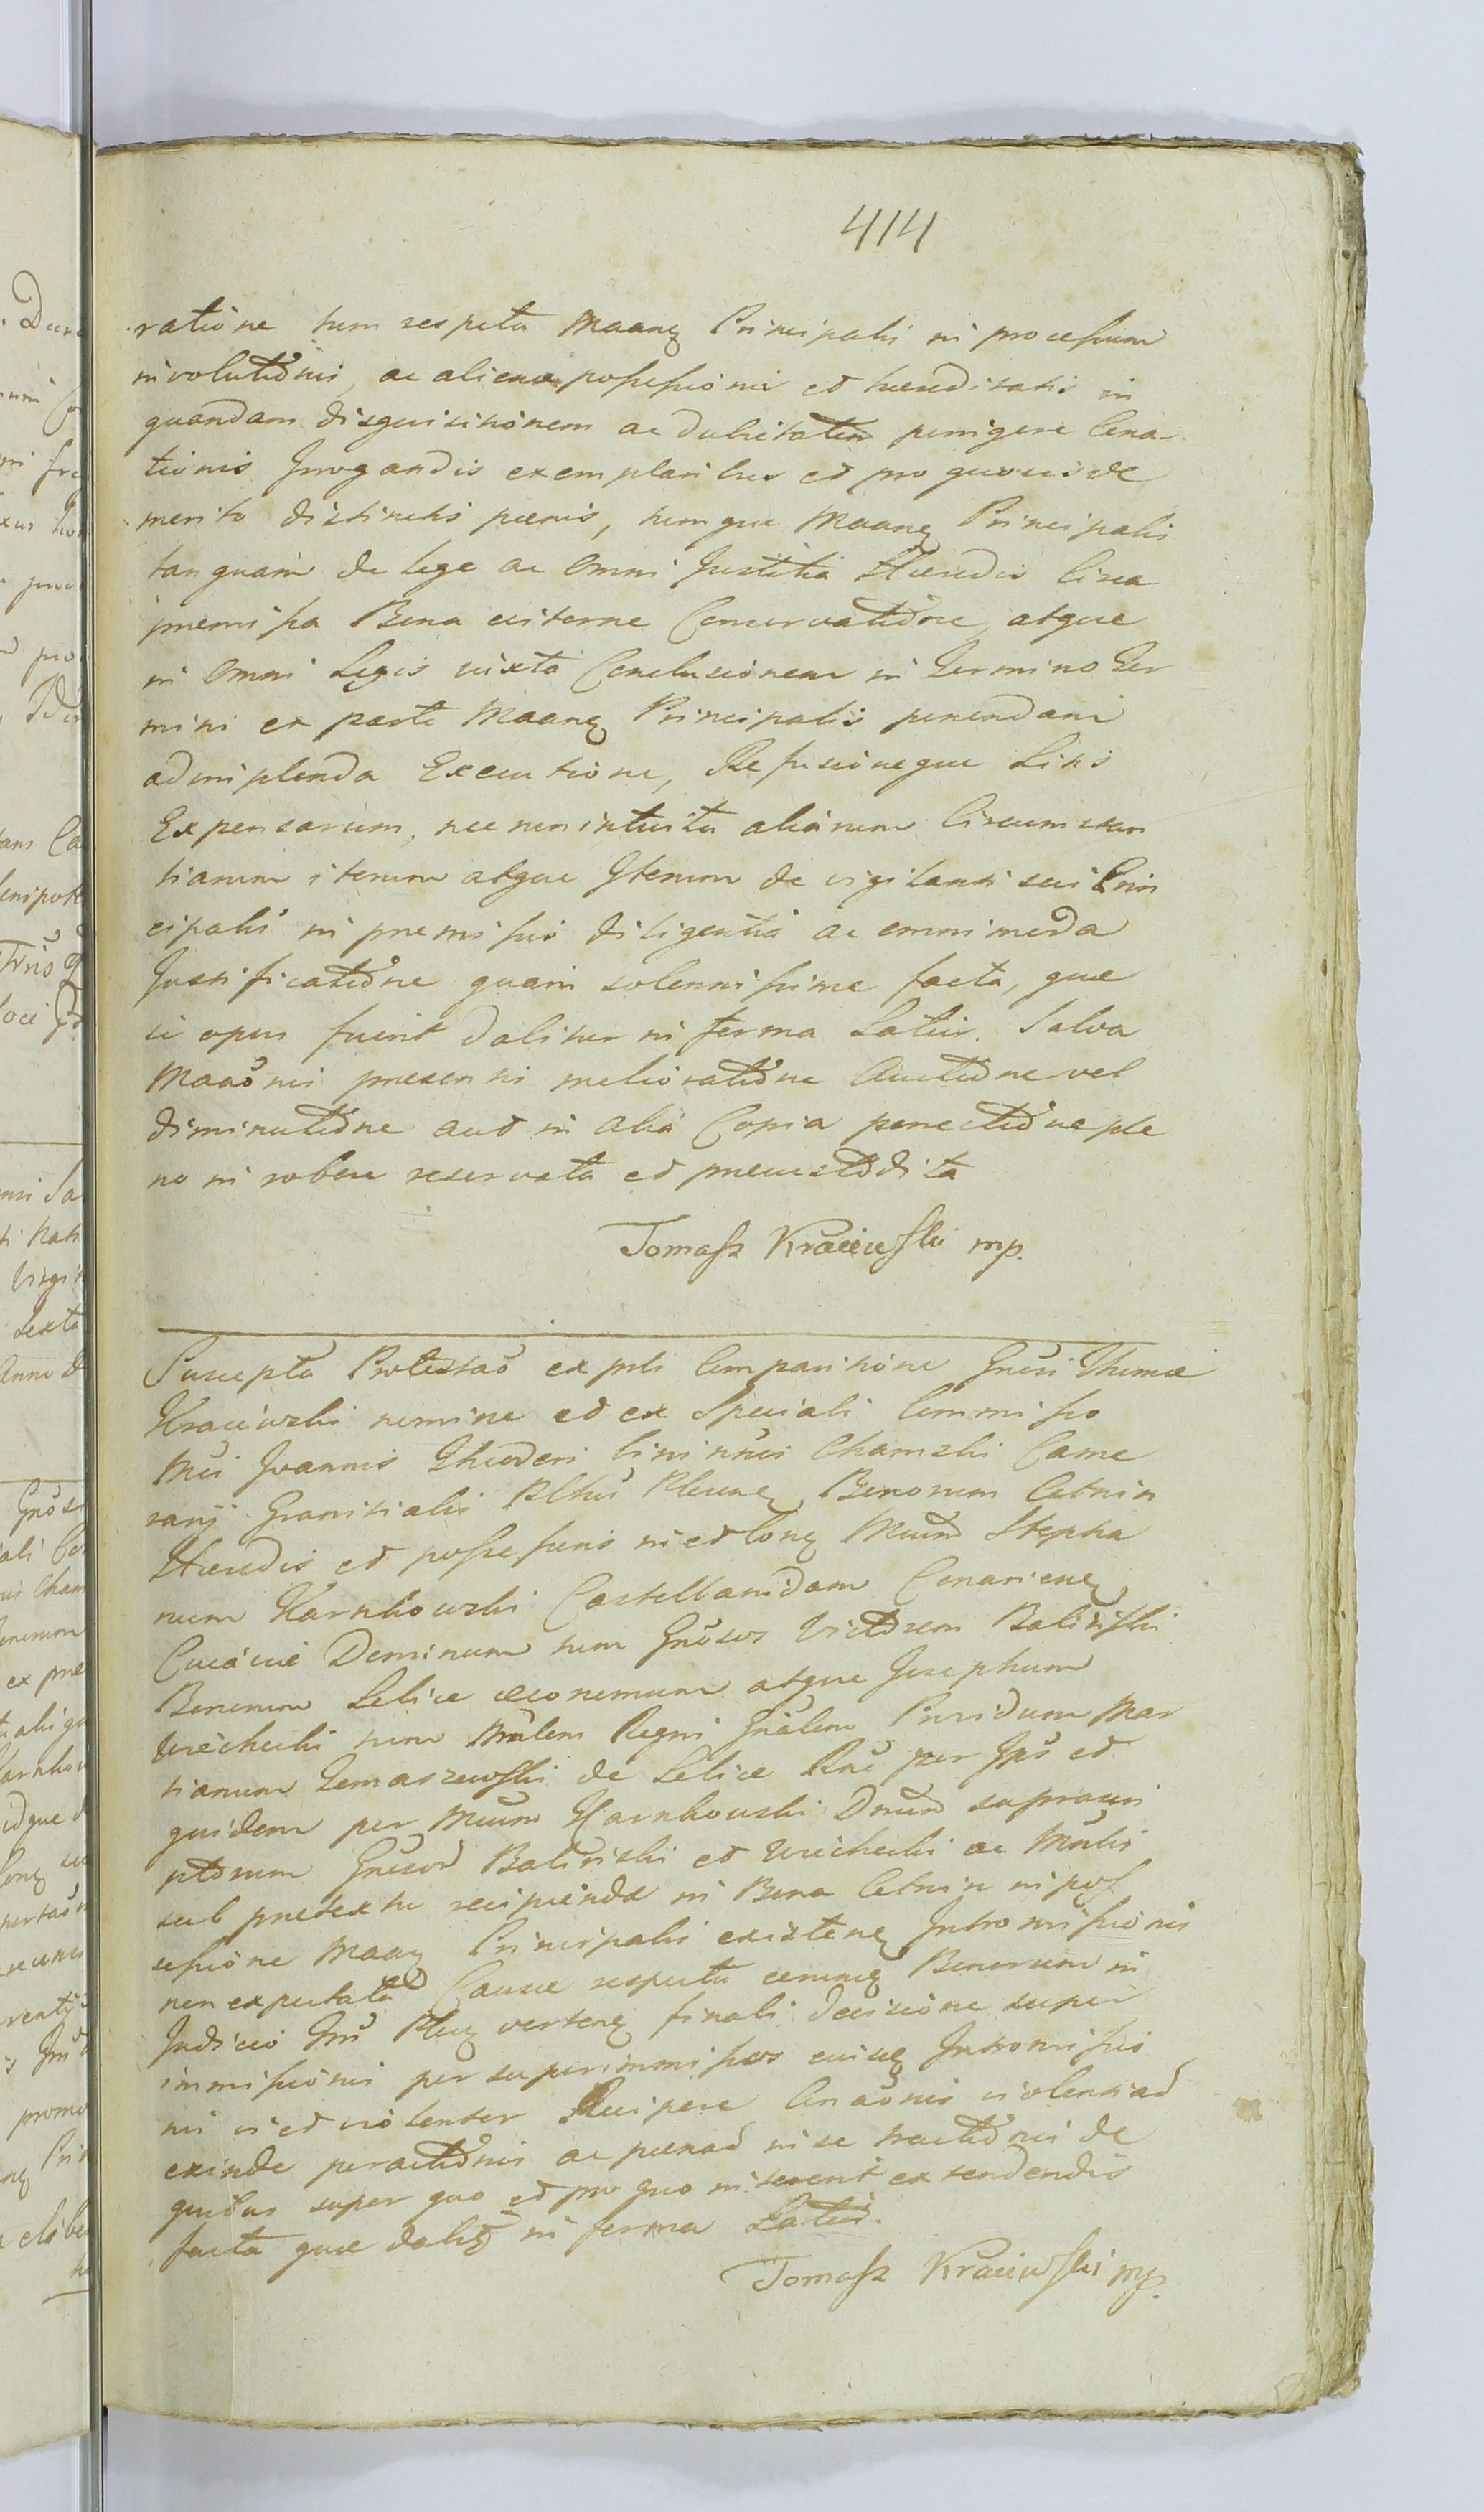 414
ratione tum respectu Maanę Principalis in processum
involutionis, ac alienae possessionis et haereditatis in
quandam disquisitionem ac dubietatem perrigere Cona
tionis Irrogandis exemplaribus et pro quovis de
merito distinctis poenis, tumque Maanę Principalis
tanquam de lege ac Omni Justitia Haeredis Circa
premissa Bona eviterne Conservatione, atque
in Omni Legis iuxta Conclusionem in Termino Ter
mini ex parte Maanę Principalis ponendam
adimplenda Executione, Refusioneque Litis
Expensarum, nec non intuitu aliarum Circumstan
tiarum iterum atque Iterum de vigilanti sui Prin
cipalis in premissis diligentia ac omnimoda
Justificatione quam solennissime facta, quae
si opus fuerit dabitur in forma Latiu. Salva
Maaonis presenti melioratione Auctione vel
diminutione aut in alia Copia porrectione ple
no in robore reservata et precustodita
Tomasz Kraiewski mp.
Suscepta Protestao ex psli Comparitione Gnosi Thomae
Kraiewski nomine et ex Speciali Commisso
Mci Joannis Theodori binimnis Chamski Came
rarij Granitialis Pltus Plocnę Bonorum Cetnin
Haeredis et possessoris in et Conę Mcum Stepha
num Karnkowski Castellanidam Conariensę
Cuiaviae Dominum tum Gnosos Victorem Balinski
Bonorum Lelice oeconomum atque Josephum
Wiechecki tum Mnlem Regni Gnalem Providum Mar
tianum Tomaszewski de Lelice Rne per Ips et
quidem per Mcum Karnkowski Dnum suprascri
ptorum Gnosor Balinski et Wiechecki ac Mnlis
sub pretextu recipiendae in Bona Cetnin in pos
sessione Maanę Principalis existenę Intromissionis
non expectata Causae respectu eorumę Bonorum in
Judicio Gni Plocę vertenę finali decisione super
immissionis per superimmissos eiusę Intromissio
nis vi et violenter Recipere Conaonis violentiad
exinde peractionis ac poenad in se tractionis de
quibus super quo et pro quo in serent extendendis
facta quae dabitę in forma Latiu.
Tomasz Kraiewski mp.